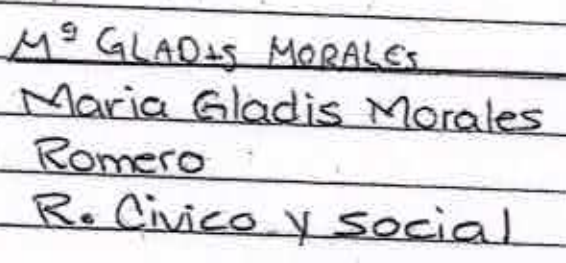 Mª GLADIS MORALES
Maria Gladis Morales
Romero
R. Civico y social